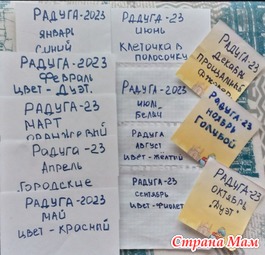 РАДУГА-2023
ЯНВАРЬ
СИНИЙ
РАДУГА-2023
ФЕВРАЛЬ
ЦВЕТ-ДУЭТ.
РАДУГА-23
МАРТ
ОРАНЖЕВЫЙ
РАДУГА-23
Апрель
ГОРОДСКИЕ
РАДУГА-2023
МАЙ
ЦВЕТ-КРАСНЫЙ
РАДУГА-23
ИЮНЬ
КЛЕТОЧКА В
ПОЛОСОЧКУ
РАДУГА-2023
ИЮЛ.
РАДУГА-23
АВГУСТ
ЦВЕТ-ЖЕЛТЫЙ
РАДУГА-23
СЕНТЯБРЬ
ЦВЕТ-ФИОЛЕТ
РАДУГА-23
ДЕКАБРЬ
РАДУГА-23
НОЯБРЬ
ГОЛУБОЙ
РАДУГА-23
ОКТЯБРЬ
"ДУЭТ"
Страна Мам